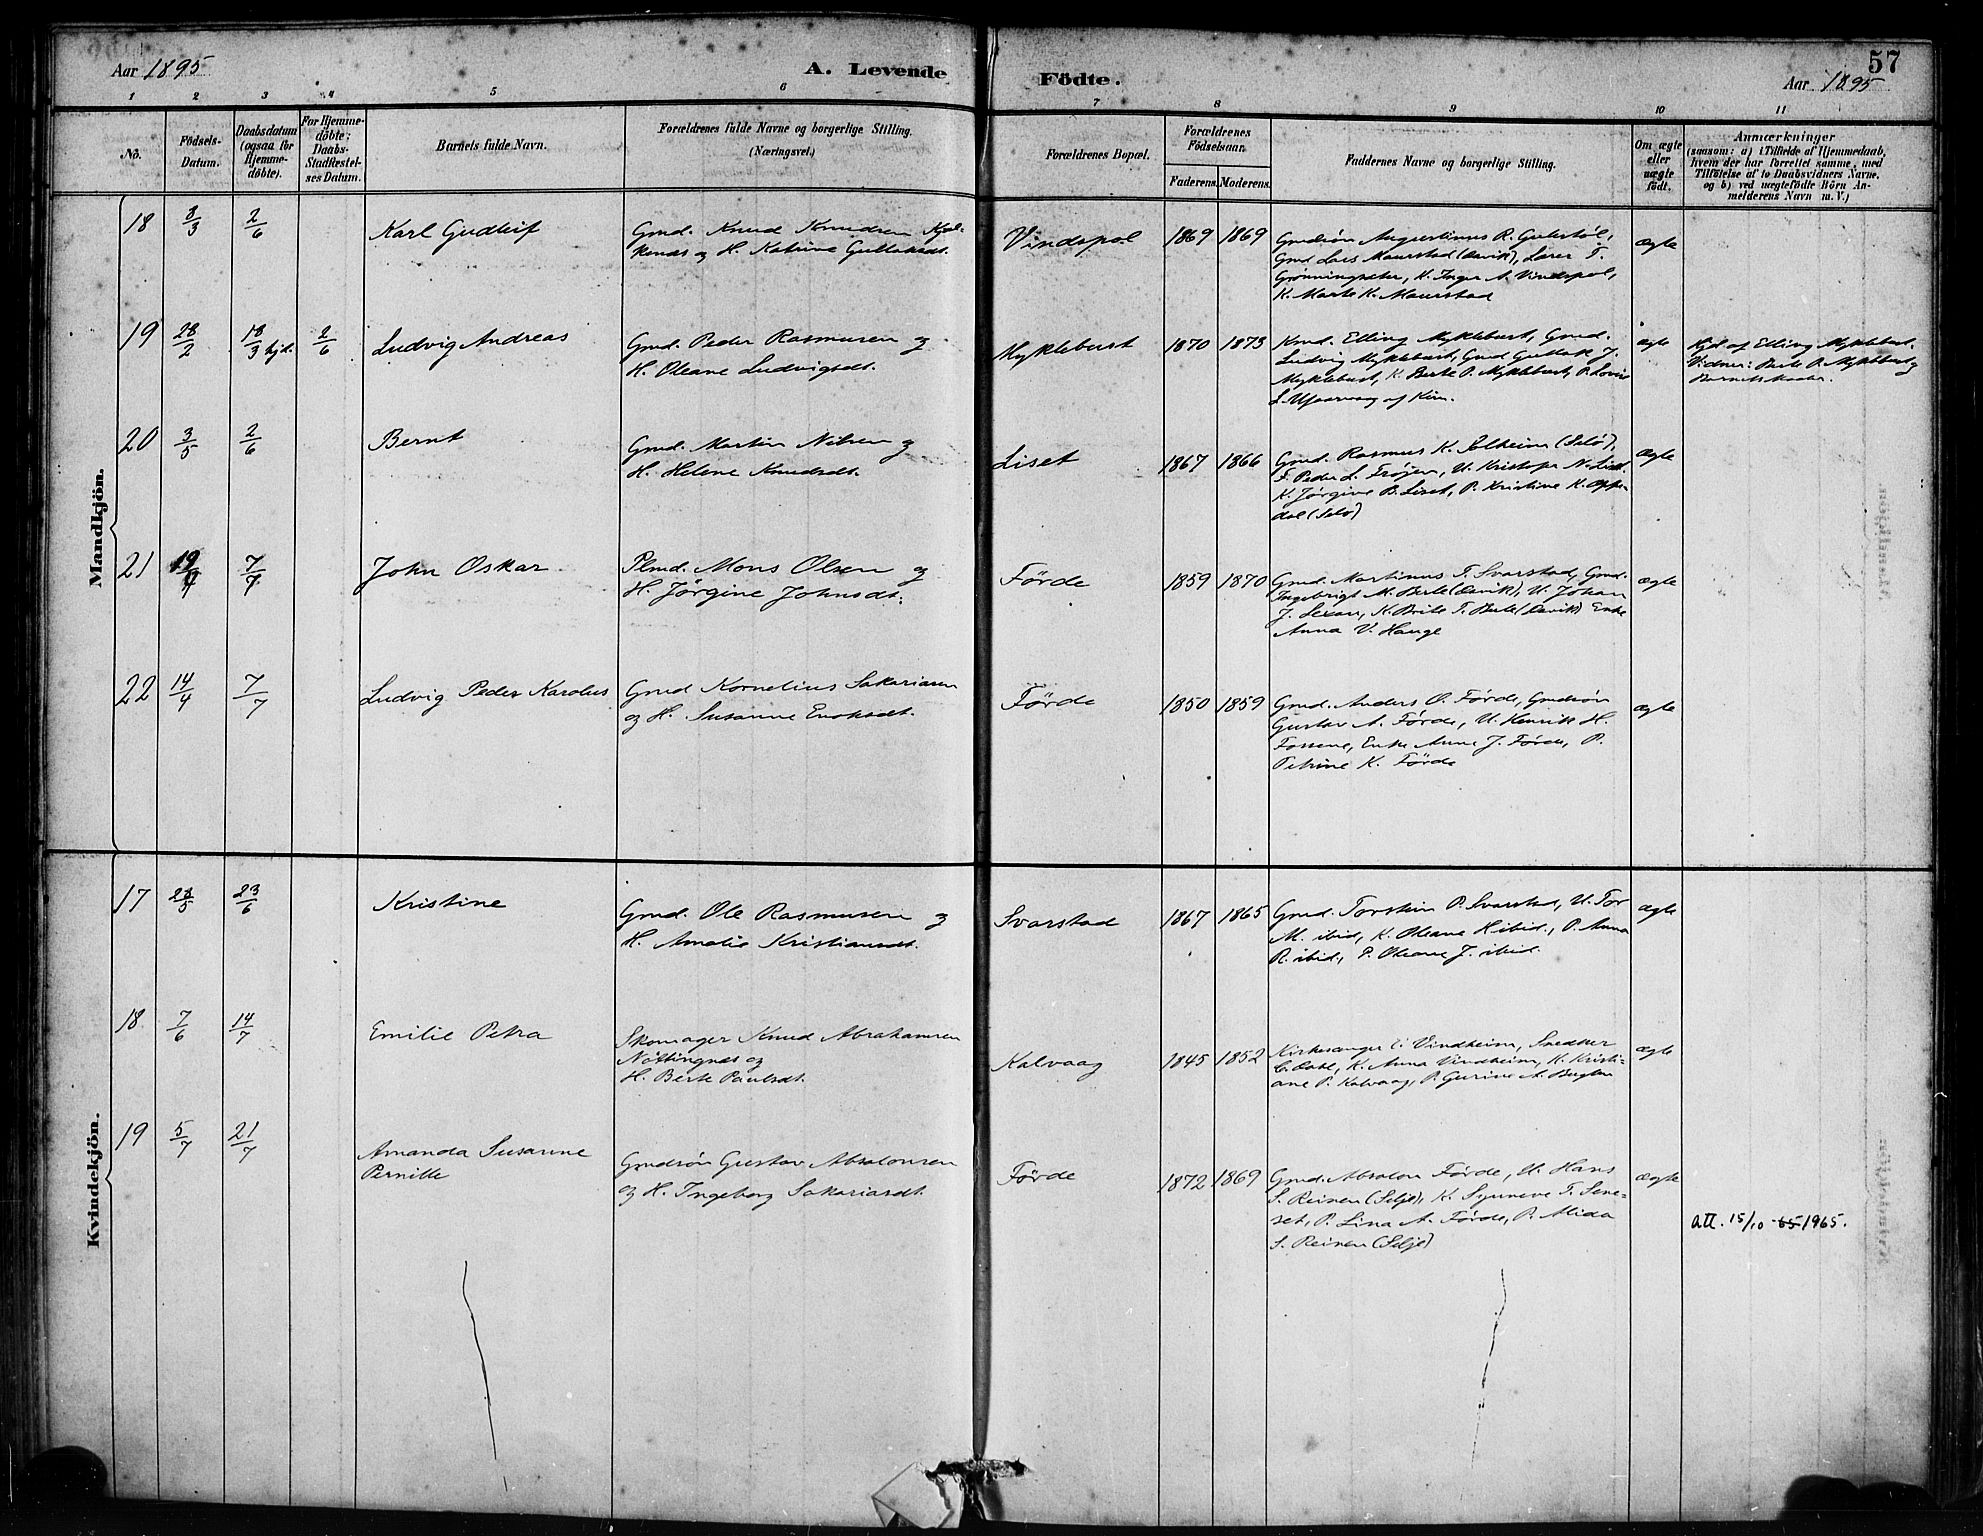 57
Aar 1895
A. Levende Födte.
Aar 1895
1 2 3 4 5 6 7 8 9 10 11
No.
Födsels-
Datum.
Daabsdatum
(ogsaa for
Hjemme-
döbte).
For Hjemme-
döbte;
Daabs-
Stadfæstel-
ses Datum.
Barnets fulde Navn.
Forældrenes fulde Navne og borgerlige Stilling.
(Næringsvei.)
Forældrenes Bopæl.
Forældrenes
Födselsaar.
Faderens. Moderens.
Faddernes Navne og borgerlige Stilling.
Om ægte
eller
uægte
født.
Anmærkninger
(saasom: a) i Tilfælde af Hjemmedaab,
hvem der har forrettet samme, med
Tilföielse af to Daabsvidners Navne,
og b) ved uægtefödte Börn An-
melderens Navn m. V.)
Mandkjön.
18 8/3 2/6
Karl Gudleif
Gmd. Knud Knudsen
og H. Katrine Gulleksdt.
Vindspol
1869 1869
Gmdsön Augustinus R.
Gmd Lars Maurstad (Davik), Lærer T.
Grönningsæter, K. Inger A. Vindspol,
K. Marte K. Maurstad
ægte
19 28/2 18/3 hjd. 2/6
Ludvig Andreas
Gmd. Peder Rasmusen og
H. Oleane Ludvigsdt.
Myklebust
1870 1873
Kmd. Elling Myklebust, Gmd.
Ludvig Myklebust, Gmd Gullak J.
Myklebust, K. Berte P. Myklebust, P. Lovise
af Kinn.
ægte
Hjd. af Elling Myklebust.
Vidner: Berte P. Myklebust og
20 3/5 2/6
Bernt
Gmd. Martin Nilsen og
H. Helene Knudsdt.
Liset
1867 1866
Gmd. Rasmus K. (Selö),
F. Peder L. Fröjen, U. Kristofer N. Liset
K. Jörgine B. Liset, P. Kristine K. Oppe-
dal (Selö)
ægte
21 19/4 7/7
John Oskar
Plmd. Mons Olsen og
H. Jörgine Johnsdt.
Förde
1859 1870
Gmd. Martinus T. Svarstad, Gmd.
Ingebrigt M. Berle (Davik), U. Johan
J. K. Brite T. Berle (Davik) Enke
Anna V. Hauge
ægte
22 14/4 7/7
Ludvig Peder Karolus
Gmd Kornelius Sakariasen
og H. Susanne Enoksdt.
Förde
1850 1859
Gmd. Anders O. Förde, Gmdsön
Gustav A. Förde, U. Henrik H.
Enke Anne J. Förde, P.
Petrine K. Förde
ægte
Kvindekjön.
17 28/5 23/6
Kristine
Gmd. Ole Rasmusen og
H. Amalie Kristiansdt.
Svarstad
1867 1865
Gmd. Torstein P. Svarstad, U. Tor
M. ibid, K. Oleane H ibid., P. Anna
R. ibid., P. Oleane J. ibid.
ægte
18 7/6 14/7
Emilie Petra
Skomager Knud Abrahamsen
Nöttingnes og
H. Berte Paulsdt.
Kalvaag
1845 1852
Kirkesanger Vindheim, Snedker
K. Anna Vindheim, K. Kristi-
ane P. Kalvaag, P. Gurine A.
ægte
19 5/7 21/7
Amanda Susanne
Pernille
Gmdsön Gustav Absalonsen
og H. Ingeborg Sakariasdt.
Förde
1872 1869
Gmd. Absalon Förde, U. Hans
S. Reinen (Selje), K. Synneve T. Sene-
set, P. Lina A. Förde, P. Alida
S. Reinen (Selje)
ægte
Att. 15/10 65 1965.